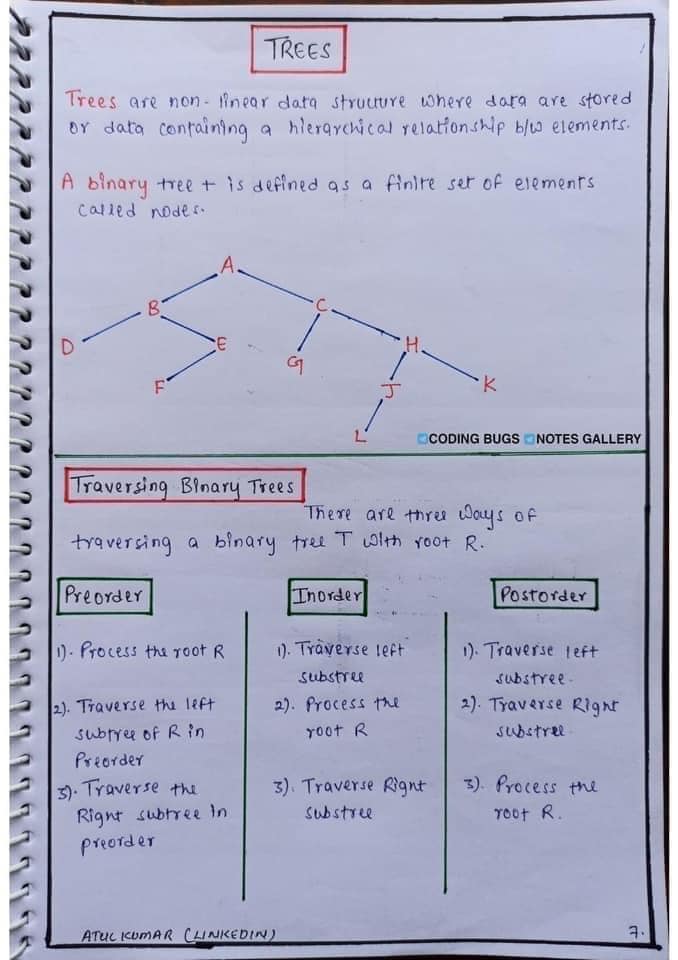 TREES
Trees are non-linear data structure where data are stored
or data containing a hierarchical relationship b/w elements.
A binary tree t is defined as a finite set of elements
called nodes.
A
B
C
D
E
G
H
F
J
K
L
CODING BUGS NOTES GALLERY
Traversing Binary Trees
There are three ways of
traversing a binary tree T with root R.
Preorder
1). Process the root R
2). Traverse the left
subtree of R in
Preorder
3). Traverse the
Right subtree in
preorder
Inorder
1). Traverse left
substree
2). Process the
root R
3). Traverse Right
substree
Postorder
1). Traverse left
substree.
2). Traverse Right
substree.
3). Process the
root R.
ATUL KUMAR (LINKEDIN)
7.